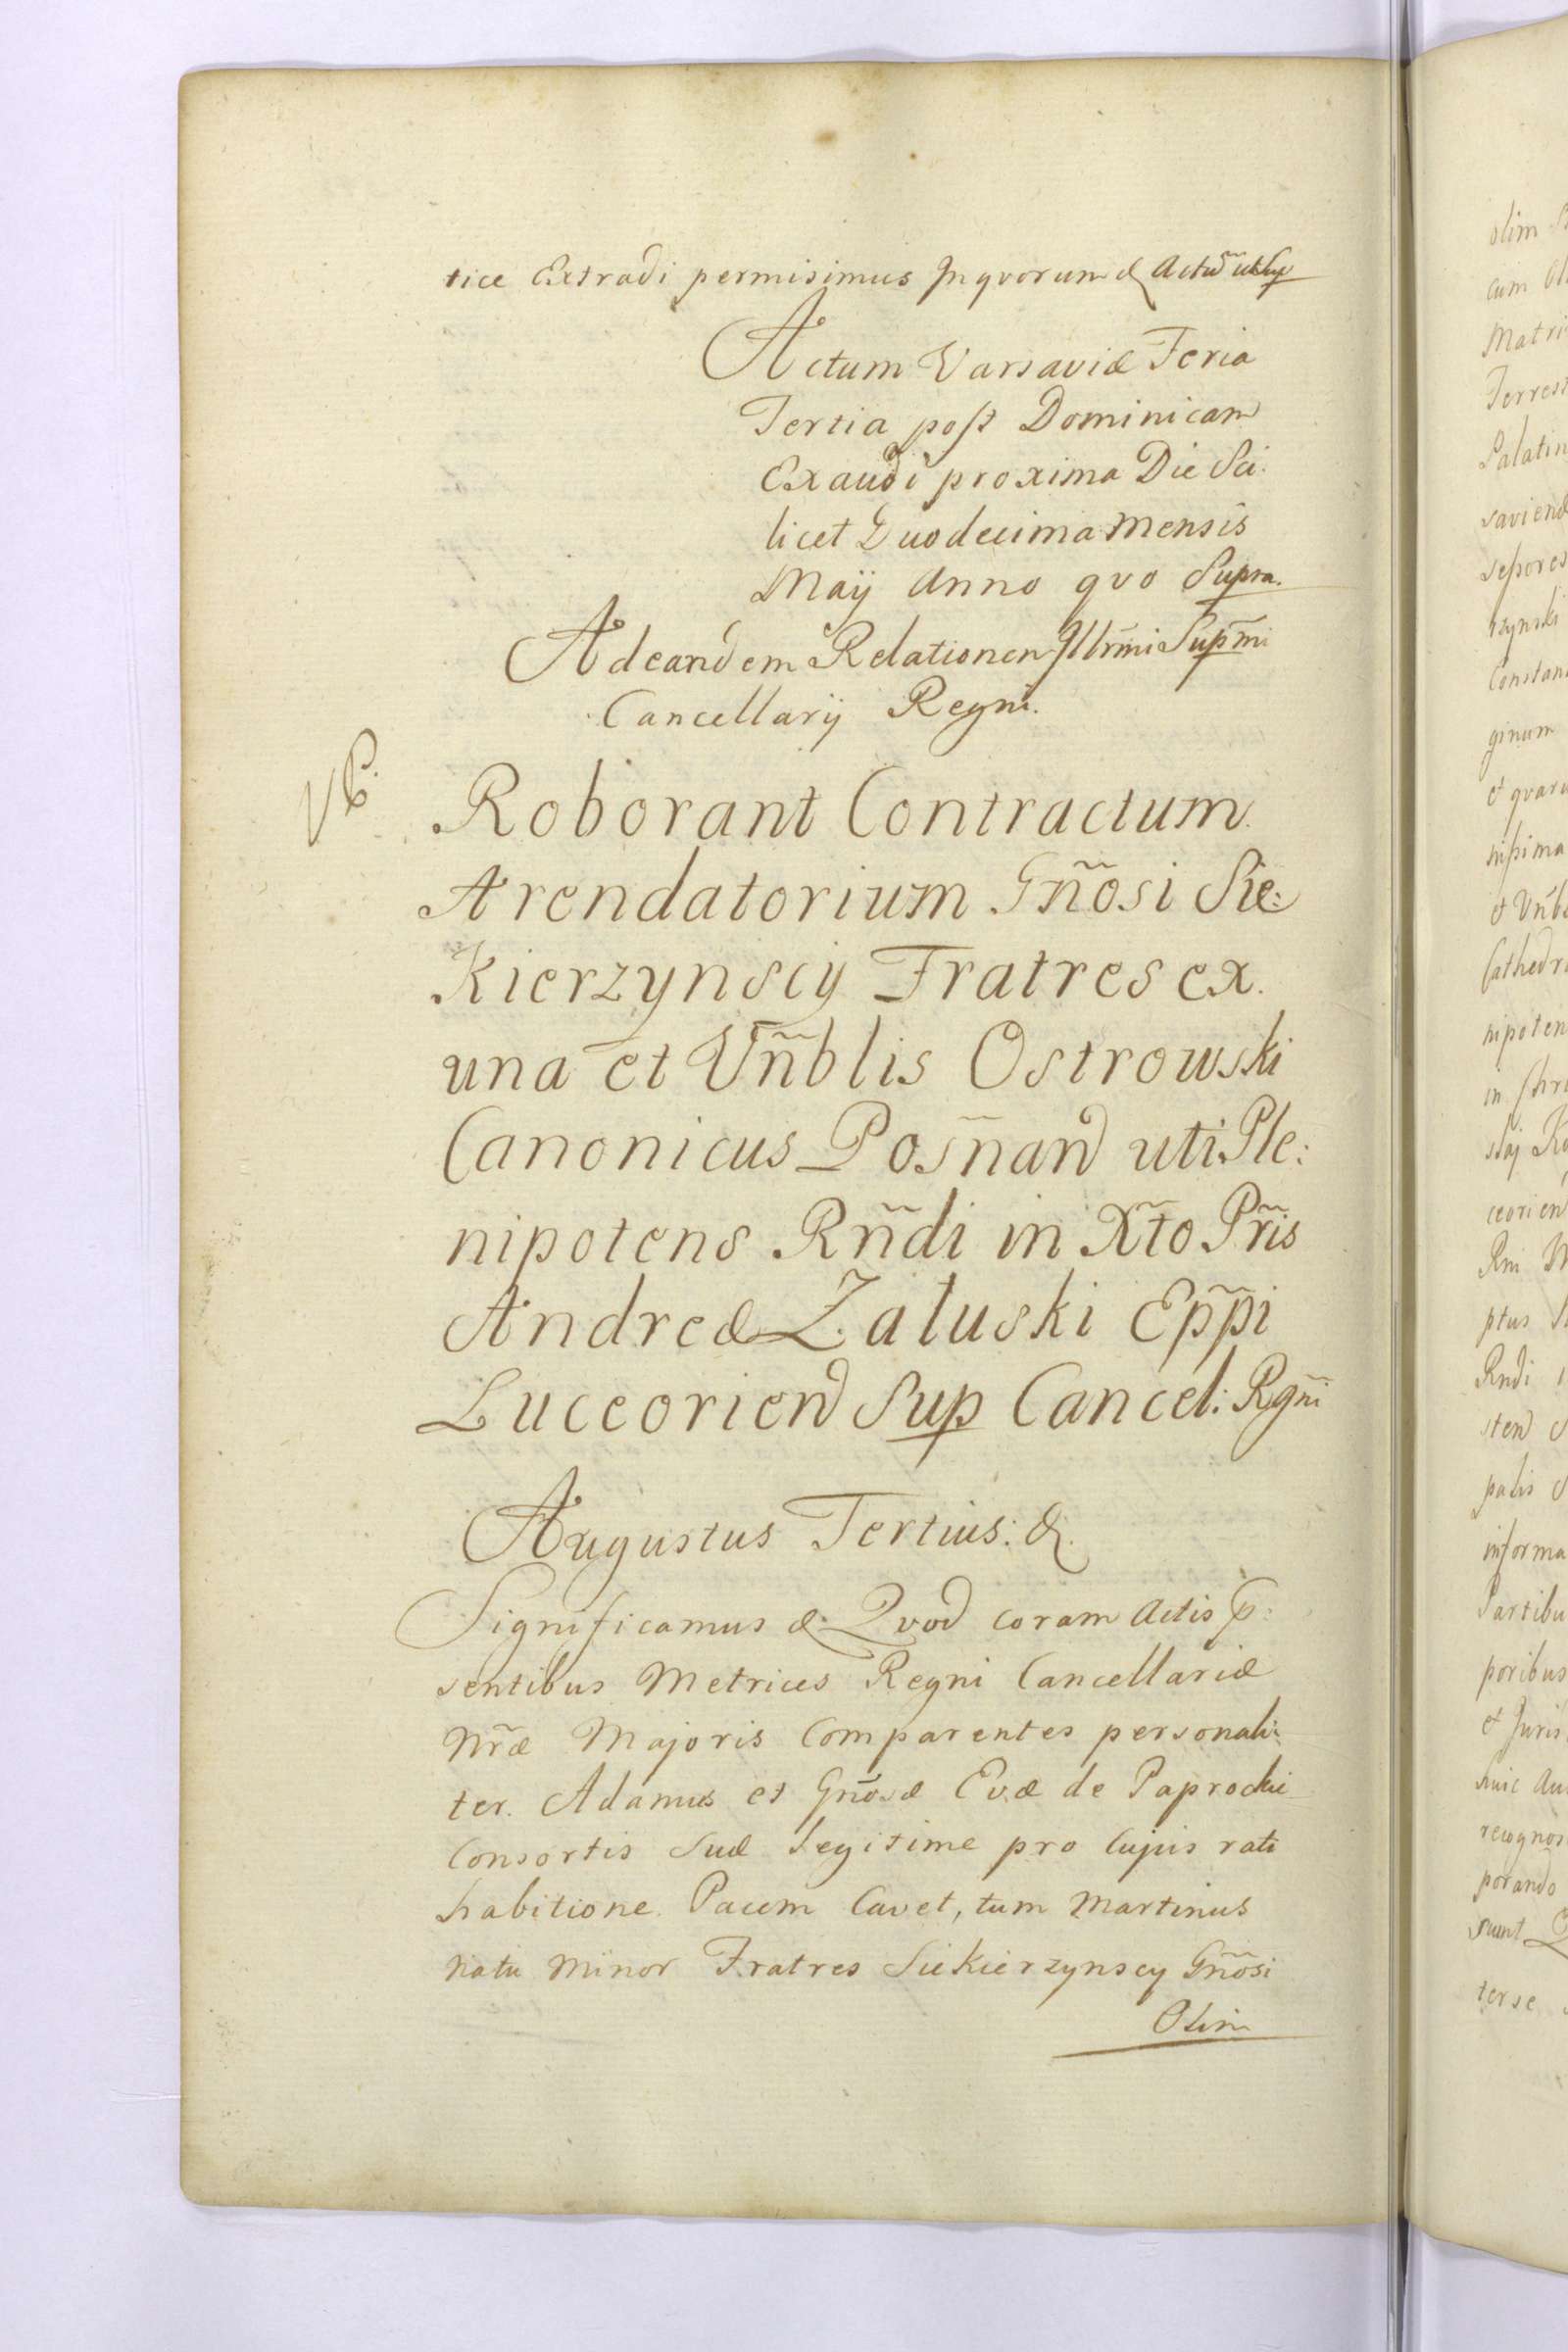 tice Extradi permisimus Inqvorum & Actũ ut Sup
Actum Varsaviæ Feria
Tertia post Dominicam
Exaudi proxima Die Sci:
licet Duodecima Mensis
Maÿ Anno qvo Supra.
Adeandem Relationem Illr̃mi Supr̃mi
Cancellarÿ Regni.
Roborant Contractum
Arendatorium Gñosi Sie:
Kierzynscy Fratres ex
una et Vñblis Ostrowski
Canonicus Posñan uti Ple:
nipotens Rñdi in Xt̃o Pr̃is
Andreæ Załuski Epp̃i
Luceorien Sup Cancel: Rgñi
Augustus Tertius: &
Significamus & Qvod coram Actis p:
sentibus Metrices Regni Cancellariæ
Nr̃æ Majoris Comparentes personali:
ter. Adamus et Gñosæ Evæ de Paprockie
Consortis Suæ Legitime pro Cujus rati
habitione Pacem Cavet, tum Martinus
natu Minor Fratres Siekierzynscy Gñosi
Olim
olim
cum
Matri
Terrest
Palatin
rzynski
Constan
ginum
Cathedr
nipoten
in Chri
ptus
Rndi
palis
informa
Partibu
poribus
et Juris
recognos
porando
sunt
terse